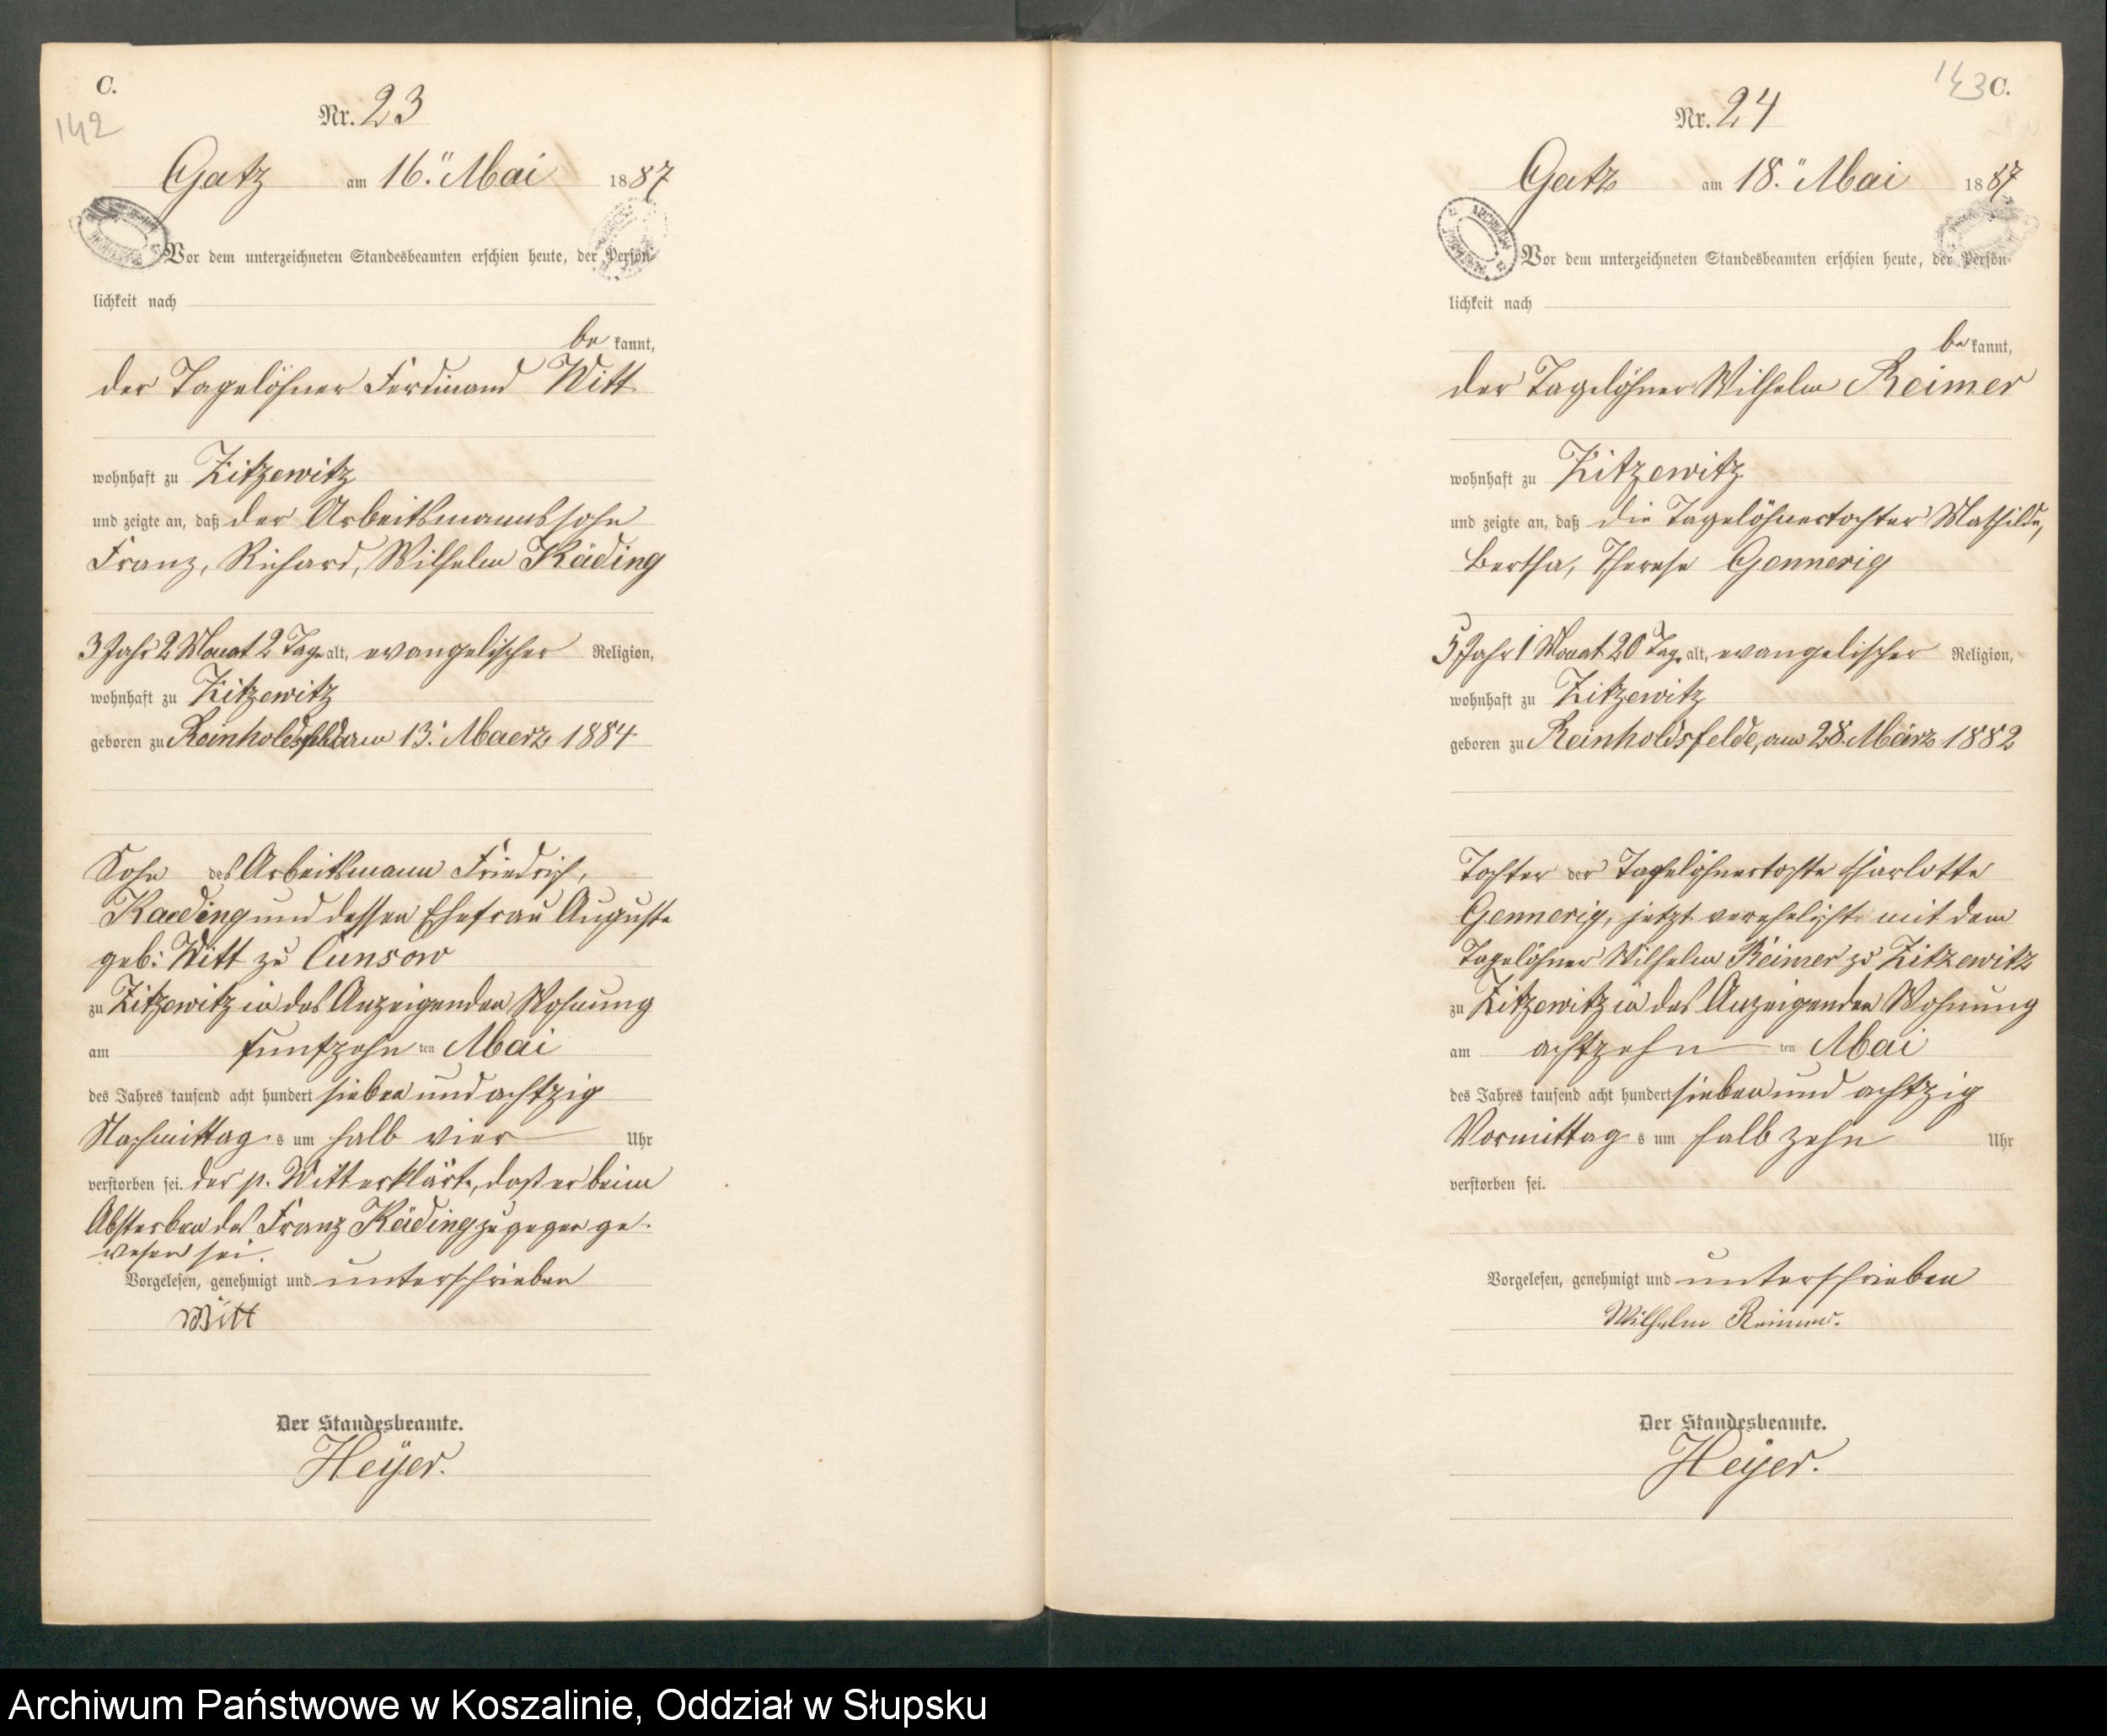 C.
142
Nr. 23
Gatz am 16.ⁿ Mai 1887
Vor dem unterzeichneten Standesbeamten erschien heute, der Persön-
lichkeit nach
be kannt,
der Tagelöhner Ferdinand Witt
wohnhaft zu Zitzewitz
und zeigte an, daß der Arbeitsmannssohn
Franz, Richard, Wilhelm Käding
3 Jahr 2 Monat 2 Tage alt, evangelischer Religion,
wohnhaft zu Zitzewitz
geboren zu Reinholdsfelde am 13. Maerz 1884
Sohn des Arbeitsmann Friedrich,
Kaeding und dessen Ehefrau Auguste
geb: Witt zu Cunsow
zu Zitzewitz in des Anzeigenden Wohnung
am funfzehn ten Mai
des Jahres tausend acht hundert sieben und achtzig
Nachmittag s um halb vier Uhr
verstorben sei. der p. Witt erklärte, daß er beim
Absterben des Franz Käding zugegen ge-
wesen sei.
Vorgelesen, genehmigt und unterschrieben
Witt
Der Standesbeamte.
Heyer.
143 C.
Nr. 24
Gatz am 18.ⁿ Mai 1887
ARCHIWUM
Vor dem unterzeichneten Standesbeamten erschien heute, der Persön-
lichkeit nach
be kannt,
der Tagelöhner Wilhelm Reimer
wohnhaft zu Zitzewitz
und zeigte an, daß die Tagelöhnertochter Mathilde,
Bertha, Therese Gennerig
5 Jahr 1 Monat 20 Tag. alt, evangelischer Religion,
wohnhaft zu Zitzewitz
geboren zu Reinholdsfelde, am 28. März 1882
Tochter der Tagelöhnertochte Charlotte
Gennerig, jetzt verehelichte mit dem
Tagelöhner Wilhelm Reimer zu Zitzewitz
zu Zitzewitz in des Anzeigenden Wohnung
am achtzehn ten Mai
des Jahres tausend acht hundert sieben und achtzig
Vormittag s um halb zehn Uhr
verstorben sei.
Vorgelesen, genehmigt und unterschrieben
Wilhelm Reimer.
Der Standesbeamte.
Heyer.
Archiwum Państwowe w Koszalinie, Oddział w Słupsku